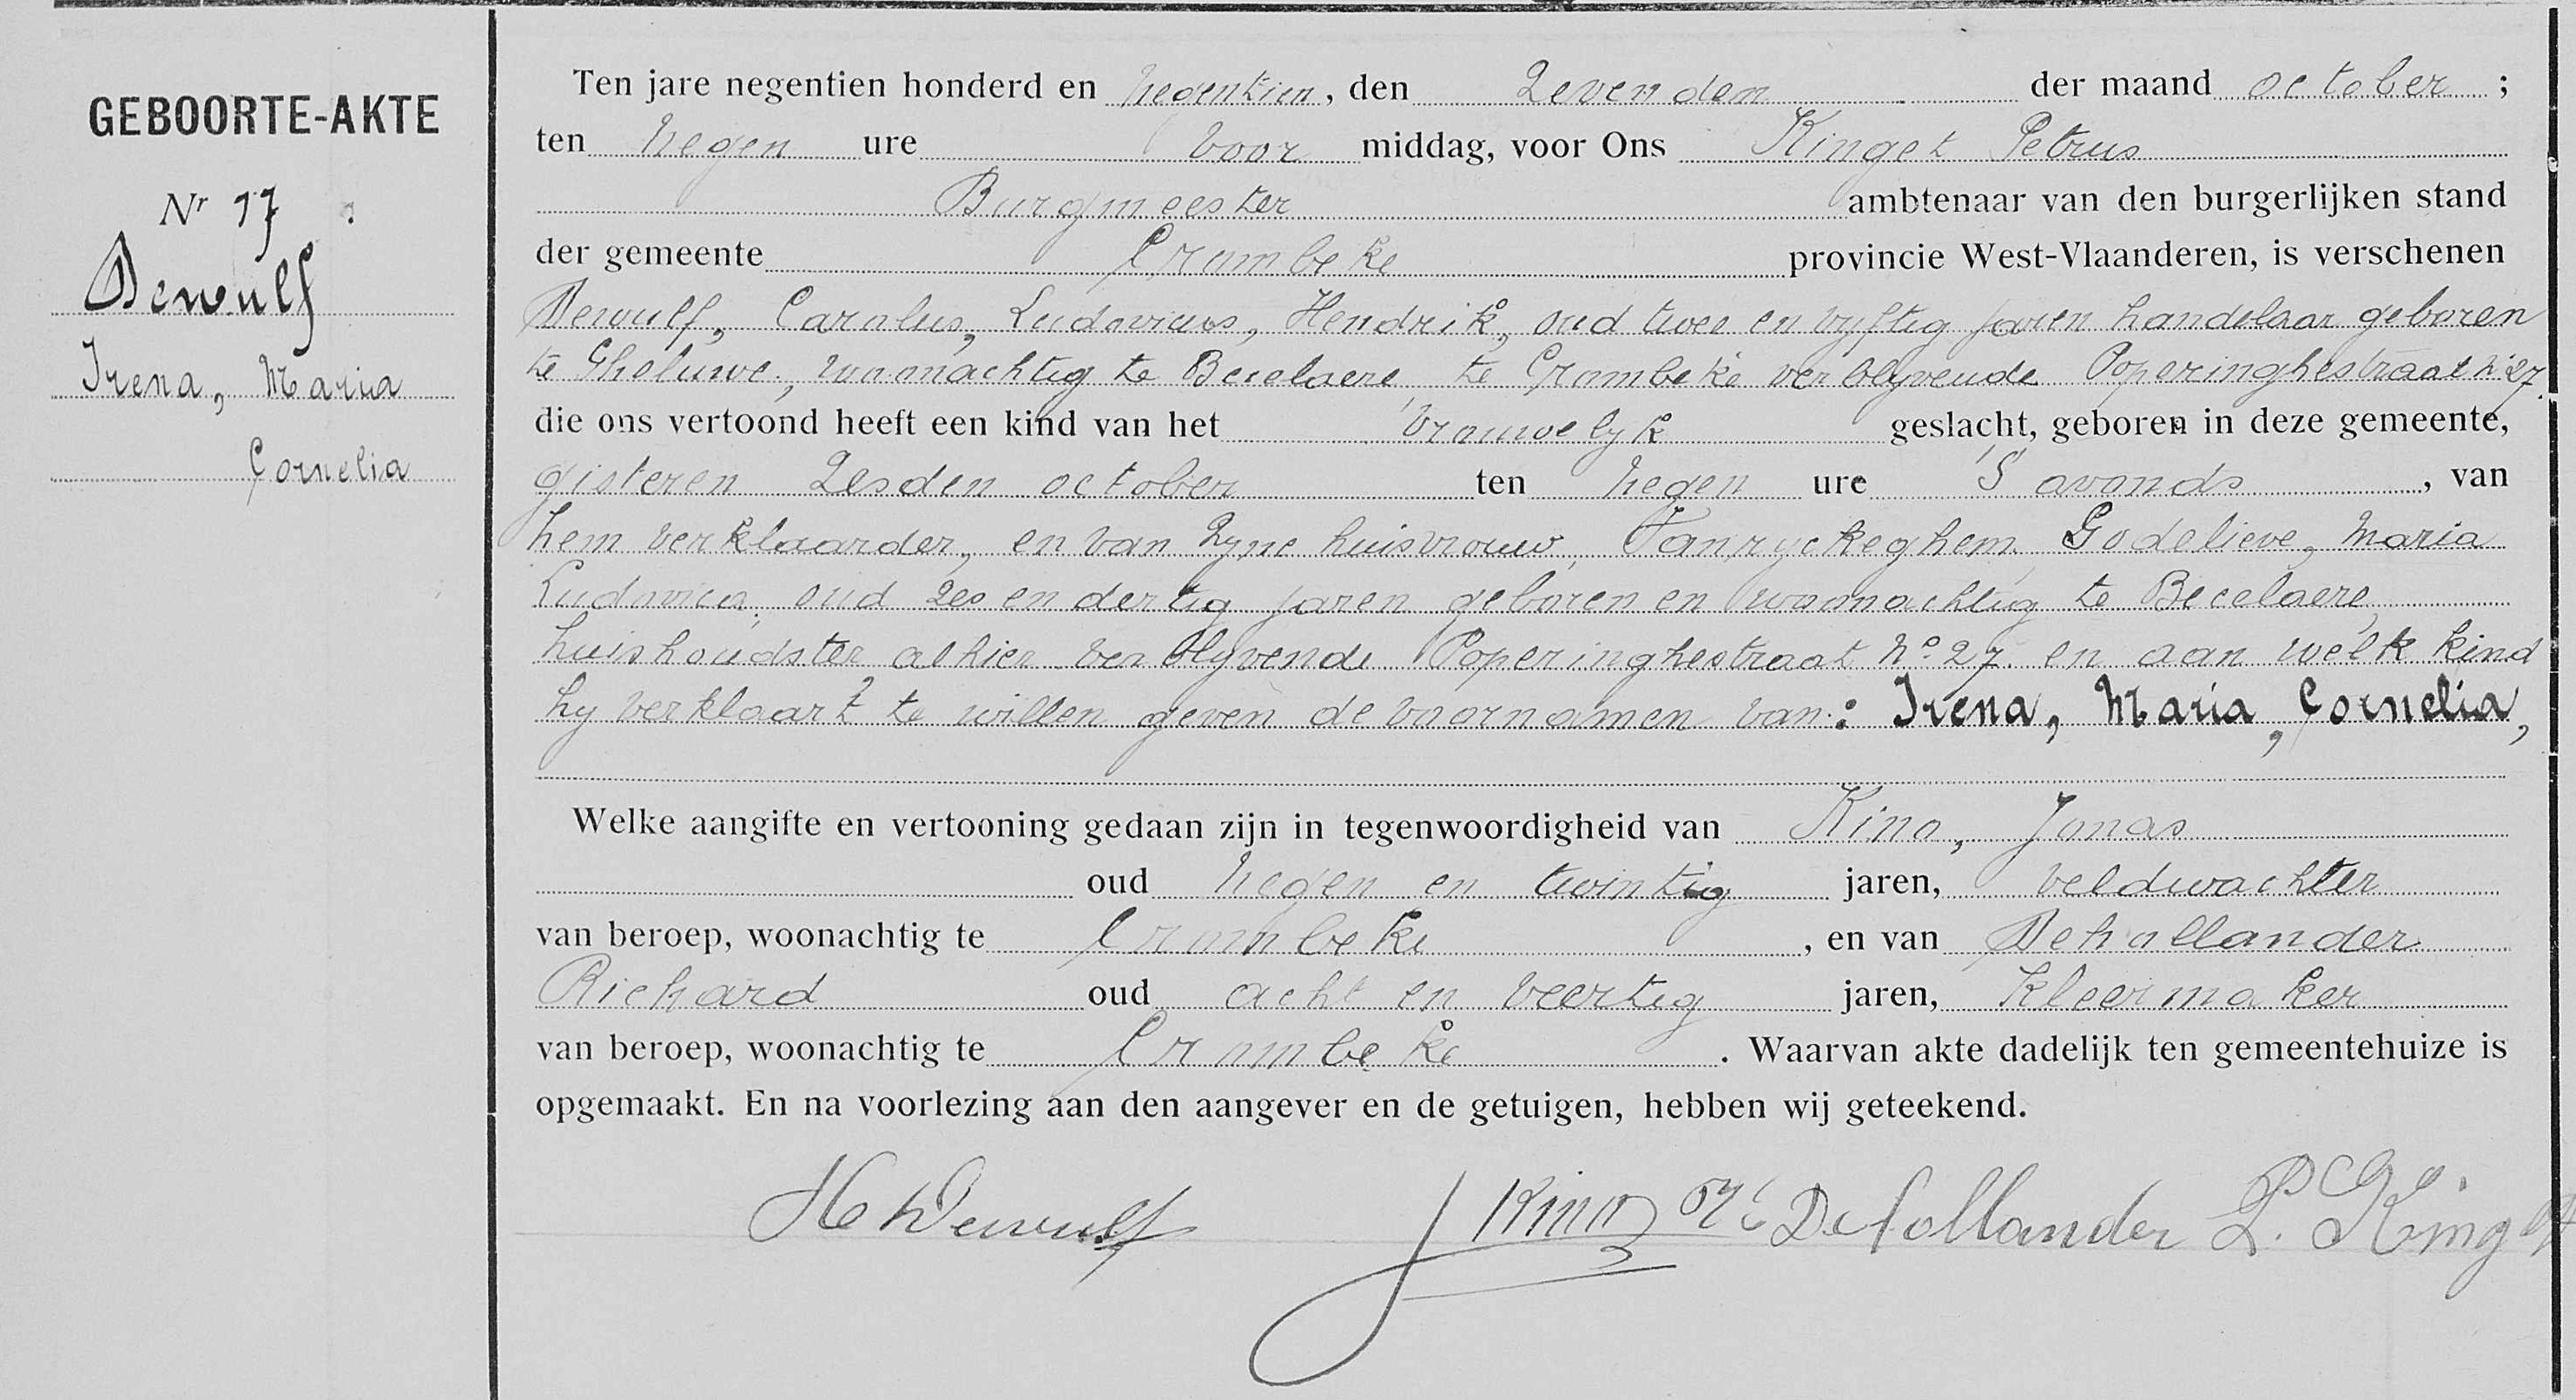 GEBOORTE-AKTE
Nr 17
Dewulf
Irena, Maria
Cornelia
Ten jare negentien honderd en negentien, den zevenden der maand october ;
ten negen ure voor middag, voor Ons Kinget Petrus
Burgmeester ambtenaar van den burgerlijken stand
der gemeente Crombeke provincie West-Vlaanderen, is verschenen
Dewulf, Carolus, Ludovicus, Hendrik, oud twee en vyftig jaren handelaar geboren
te Gheluwe, woonachtig te Becelaere te Crombeke verblyvende Poperinghestraat n° 27.
die ons vertoond heeft een kind van het vrouwelyk geslacht, geboren in deze gemeente,
gisteren zesden october ten negen ure 's avonds , van
hem verklaarder, en van zyne huisvrouw, Vanryckeghem Godelieve, Maria
Ludovica, oud zes en dertig jaren geboren en woonachtig te Becelaere,
huishoudster alhier verblyvende Poperinghestraat n° 27. en aan welk kind
hy verklaart te willen geven de voornamen van : Irena, Maria, Cornelia,
Welke aangifte en vertooning gedaan zijn in tegenwoordigheid van Kino, Jonas
oud negen en twintig jaren, veldwachter
van beroep, woonachtig te Crombeke , en van Dehollander
Richard oud acht en veertig jaren, kleermaker
van beroep, woonachtig te Crombeke . Waarvan akte dadelijk ten gemeentehuize is
opgemaakt. En na voorlezing aan den aangever en de getuigen, hebben wij geteekend.
H Dewulf J Kino Dehollander P. Kinget